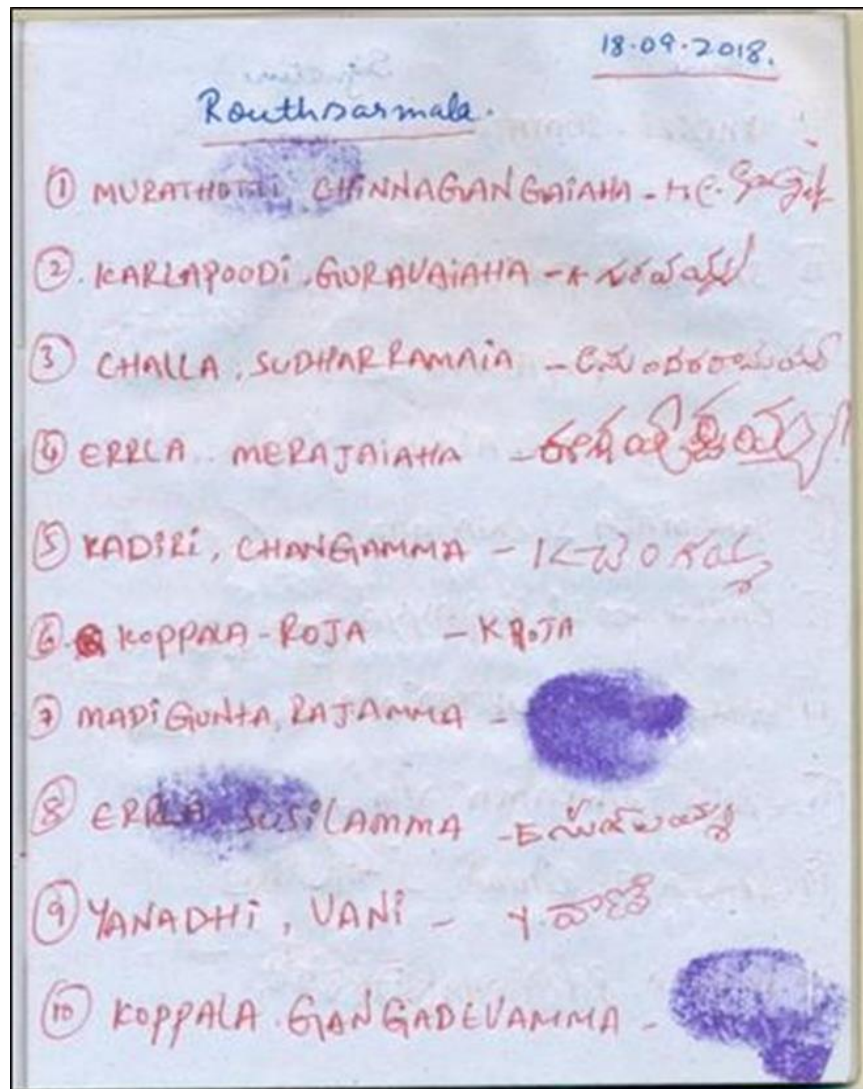 18.09.2018.
Routhsarmala.
① MURATHOTTI CHINNAGANGAIAHA -
② KARLAPOODi . GURAVAIAHA - K గురవయ్య
③ CHALLA . SUDHARRAMAIA -
④ ERRLA . MERAJAIAHA -
⑤ KADIRI , CHANGAMMA - K చెంగమ్మ
⑥ KOPPALA - ROJA - K ROJA
⑦ MADIGUNTA, RAJAMMA -
⑧ ERRLA SUSILAMMA -
⑨ YANADHI , VANI - Y. వాణి
⑩ KOPPALA . GANGADEVAMMA -